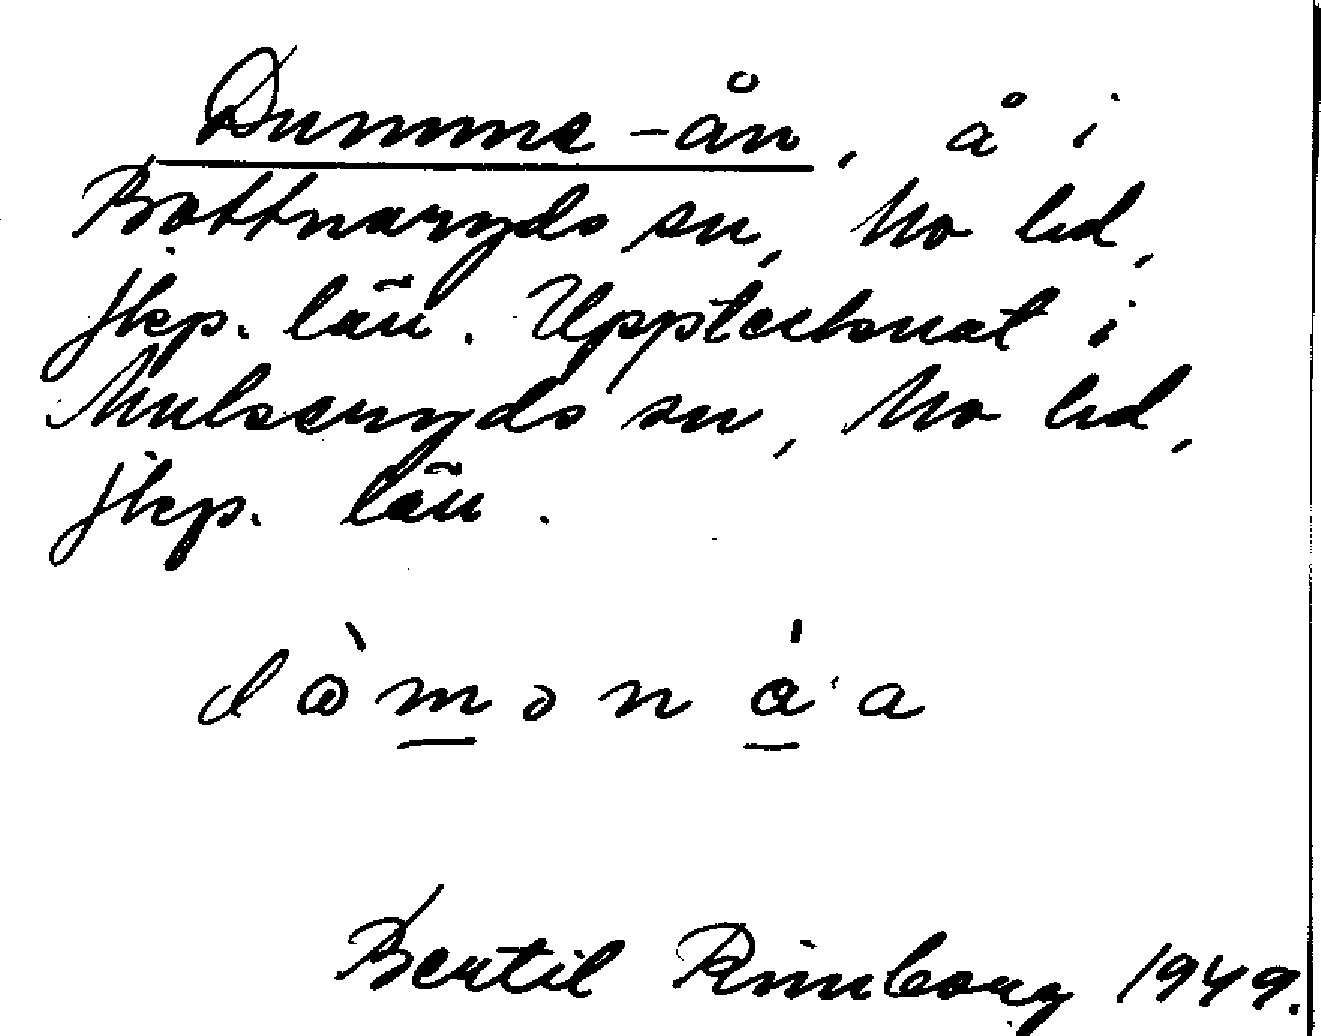 Dumme-ån, å i
Bottnaryds sn, Mo hd,
Jkp. län. Upptecknat i
Mulseryds sn, Mo hd,
Jkp. län.
Bertil Rimborg 1949.